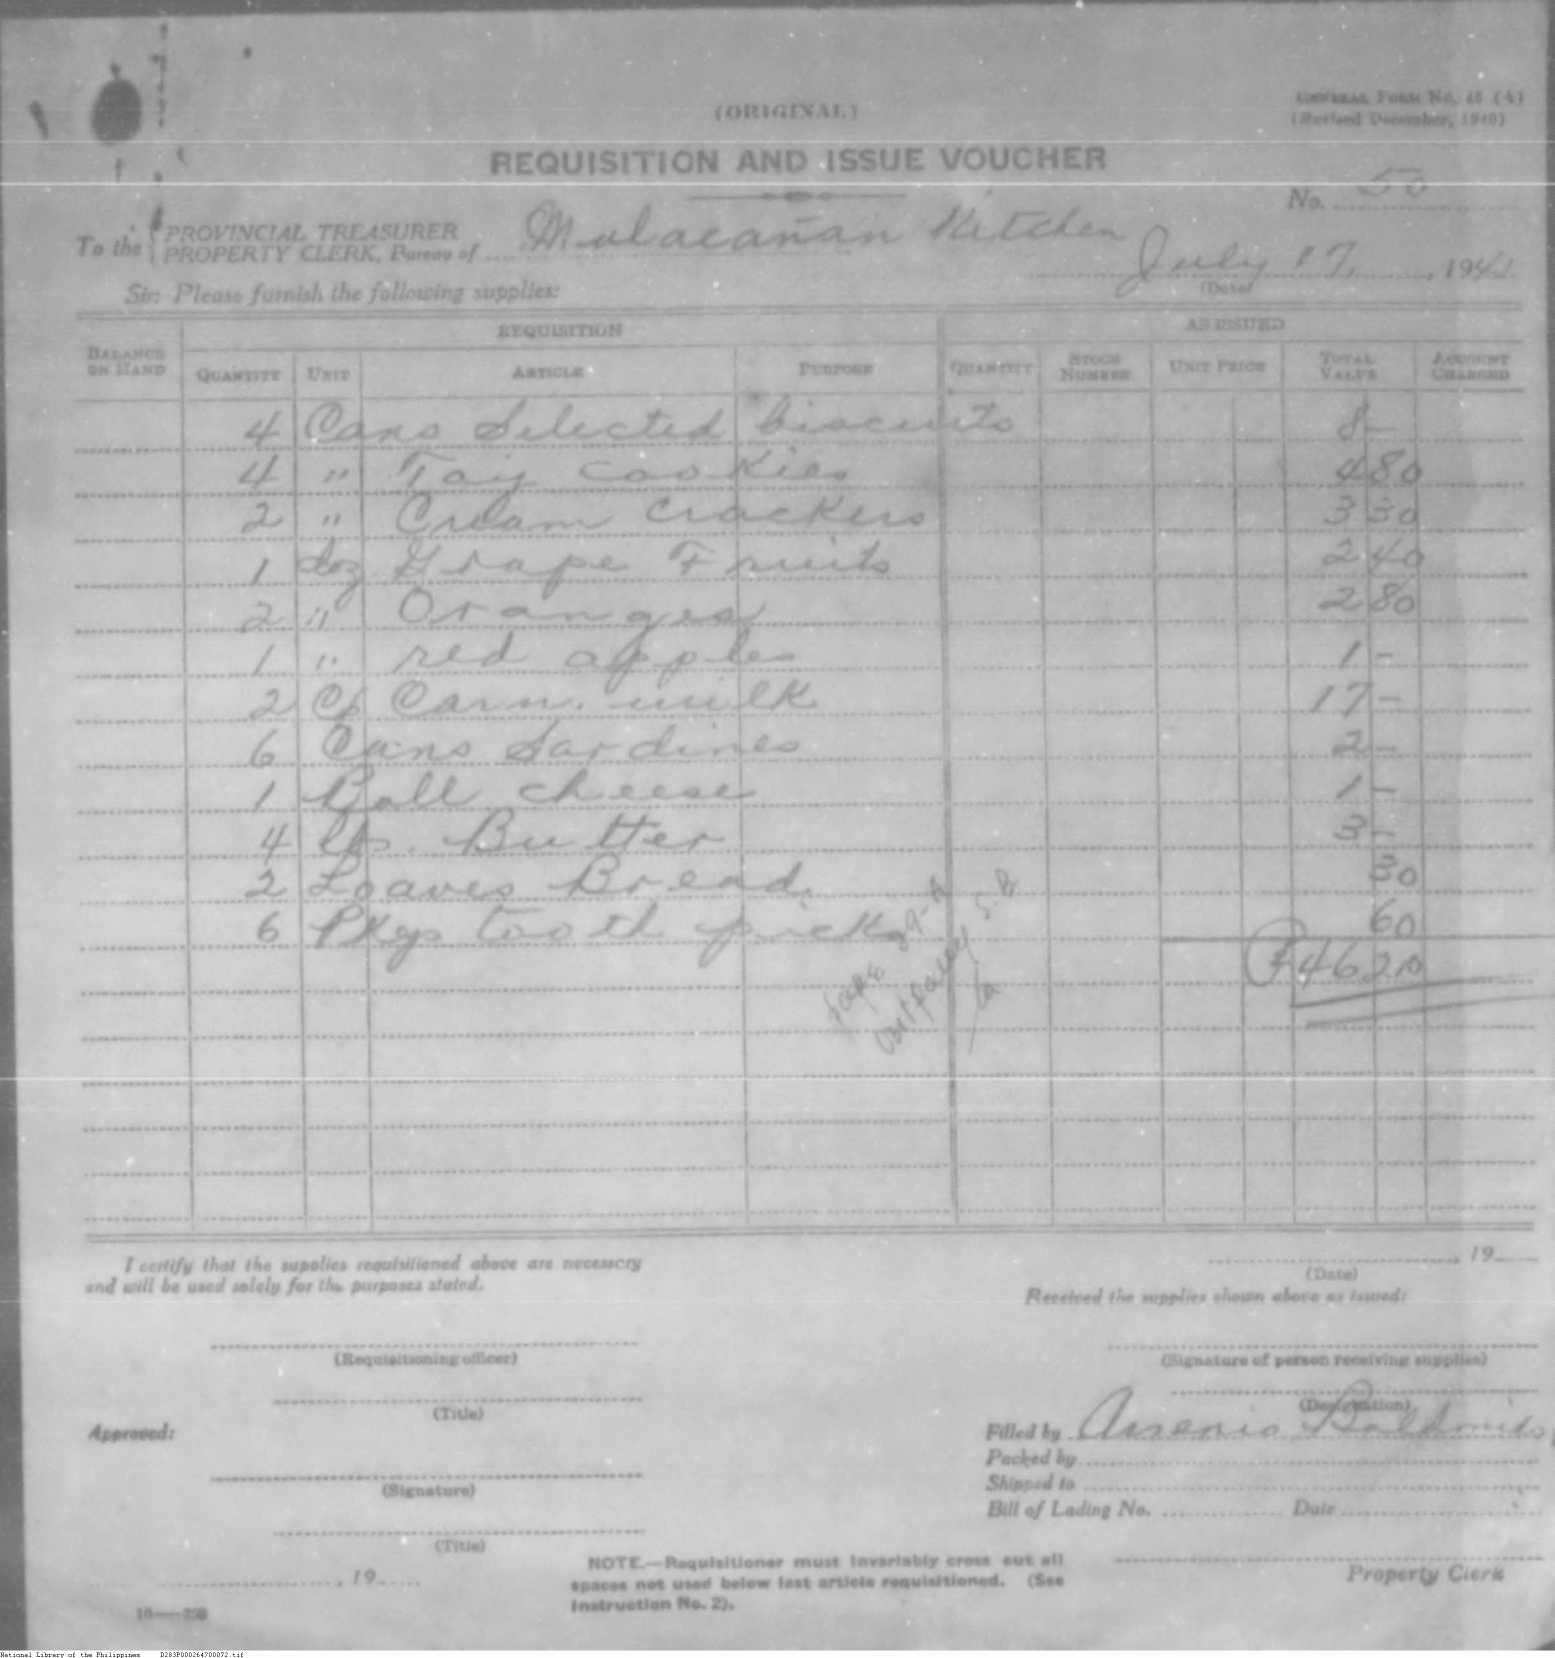 (ORIGINAL)
GENERAL FORM No. 15 (A)
(Revised December, 1940)
REQUISITION AND ISSUE VOUCHER
No. 50
To the { PROVINCIAL TREASURER
PROPERTY CLERK, Bureau of Malacañan Kitchen
July 17, 1941
(Date)
Sir: Please furnish the following supplies:
REQUISITION AS ISSUED
BALANCE ON HAND QUANTITY UNIT ARTICLE PURPOSE QUANTITY STOCK NUMBER UNIT PRICE TOTAL VALUE ACCOUNT CHARGED
4 Cans Selected biscuits 8 —
4 " Tay cookies 4 80
2 " Cream Crackers 3 30
1 doz Grape Fruits 2 40
2 " Oranges 2 80
1 " red apples 1 —
2 Cs Carn. milk 17 —
6 Cans Sardines 2 —
1 Ball cheese 1 —
4 lbs. Butter 3 —
2 Loaves Bread 30
6 Pkgs tooth pick 60
₱ 46 20
I certify that the supplies requisitioned above are necessary
and will be used solely for the purposes stated.
, 19
(Date)
Received the supplies shown above as issued:
(Requisitioning officer)
(Signature of person receiving supplies)
(Title)
(Designation)
Approved:
Filled by Arsenio
Packed by
Shipped to
(Signature)
Bill of Lading No. Date
(Title)
NOTE.—Requisitioner must invariably cross out all
spaces not used below last article requisitioned. (See
Instruction No. 2).
Property Clerk
, 19
National Library of the Philippines D283P000264700072.tif